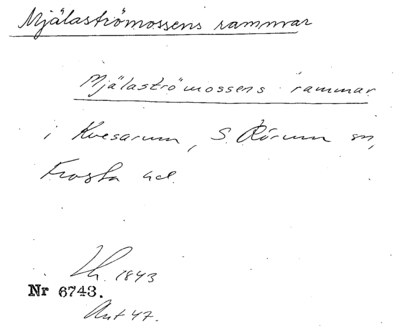 Mjälaströmossens rammar
Mjälaströmossens rammar
i Kvesarum, S. Rörum sn,
Frosta hd.
Lh. 1843
Nr 6743.
Avt 47.